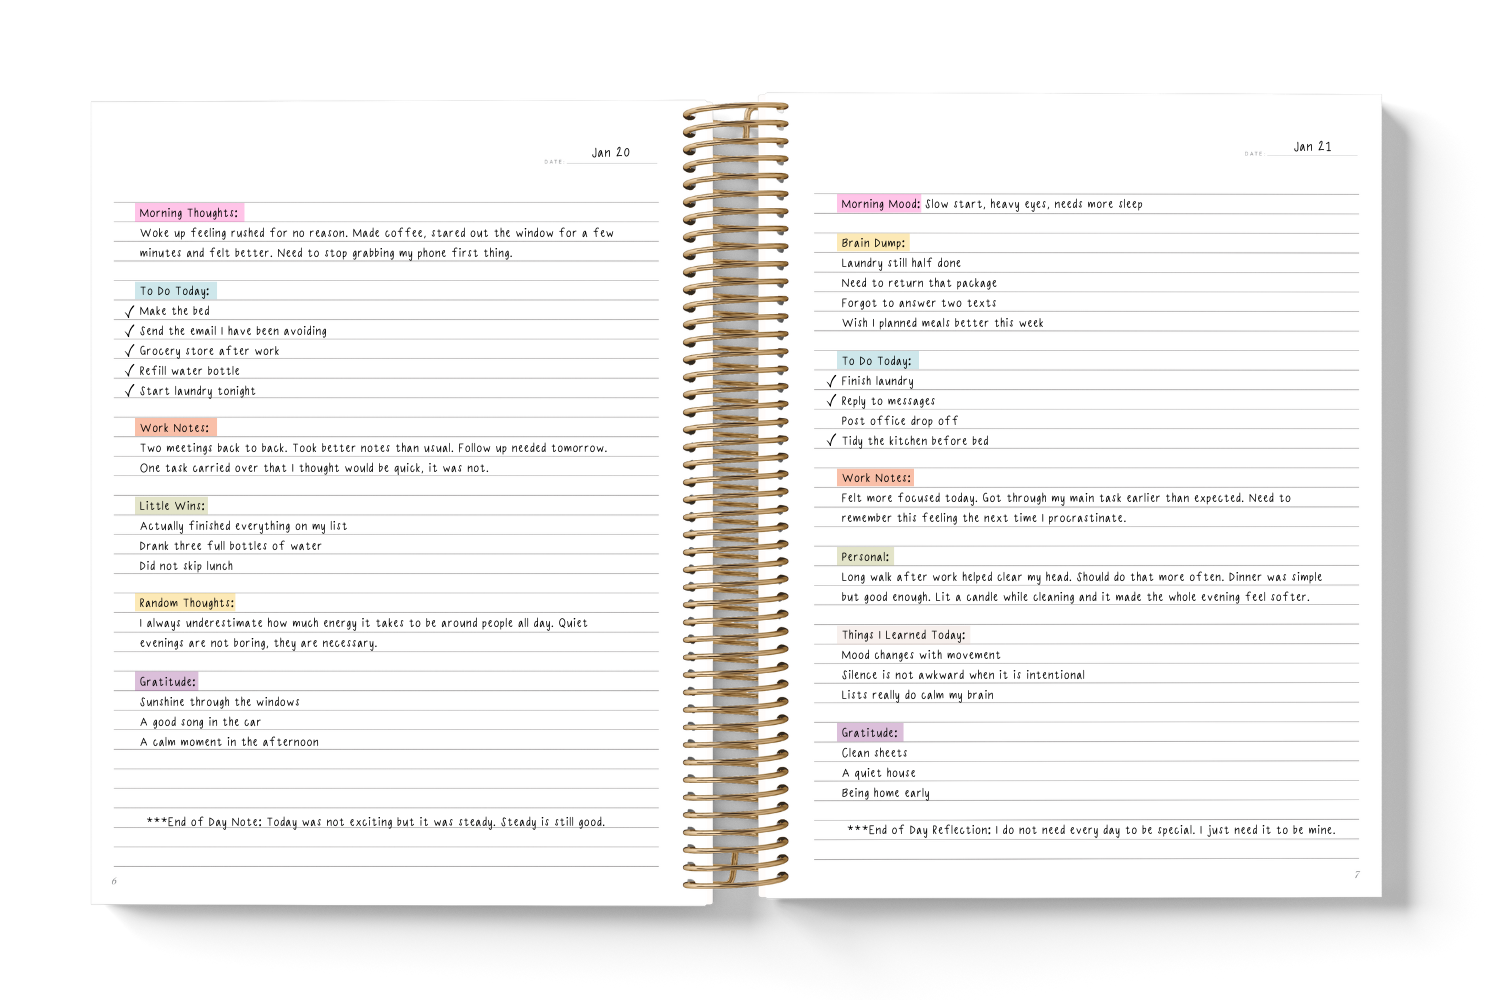 DATE: Jan 20
Morning Thoughts:
Woke up feeling rushed for no reason. Made coffee, stared out the window for a few
minutes and felt better. Need to stop grabbing my phone first thing.
To Do Today:
✓ Make the bed
✓ Send the email I have been avoiding
✓ Grocery store after work
✓ Refill water bottle
✓ Start laundry tonight
Work Notes:
Two meetings back to back. Took better notes than usual. Follow up needed tomorrow.
One task carried over that I thought would be quick, it was not.
Little Wins:
Actually finished everything on my list
Drank three full bottles of water
Did not skip lunch
Random Thoughts:
I always underestimate how much energy it takes to be around people all day. Quiet
evenings are not boring, they are necessary.
Gratitude:
Sunshine through the windows
A good song in the car
A calm moment in the afternoon
***End of Day Note: Today was not exciting but it was steady. Steady is still good.
6
DATE: Jan 21
Morning Mood: Slow start, heavy eyes, needs more sleep
Brain Dump:
Laundry still half done
Need to return that package
Forgot to answer two texts
Wish I planned meals better this week
To Do Today:
✓ Finish laundry
✓ Reply to messages
Post office drop off
✓ Tidy the kitchen before bed
Work Notes:
Felt more focused today. Got through my main task earlier than expected. Need to
remember this feeling the next time I procrastinate.
Personal:
Long walk after work helped clear my head. Should do that more often. Dinner was simple
but good enough. Lit a candle while cleaning and it made the whole evening feel softer.
Things I Learned Today:
Mood changes with movement
Silence is not awkward when it is intentional
Lists really do calm my brain
Gratitude:
Clean sheets
A quiet house
Being home early
***End of Day Reflection: I do not need every day to be special. I just need it to be mine.
7